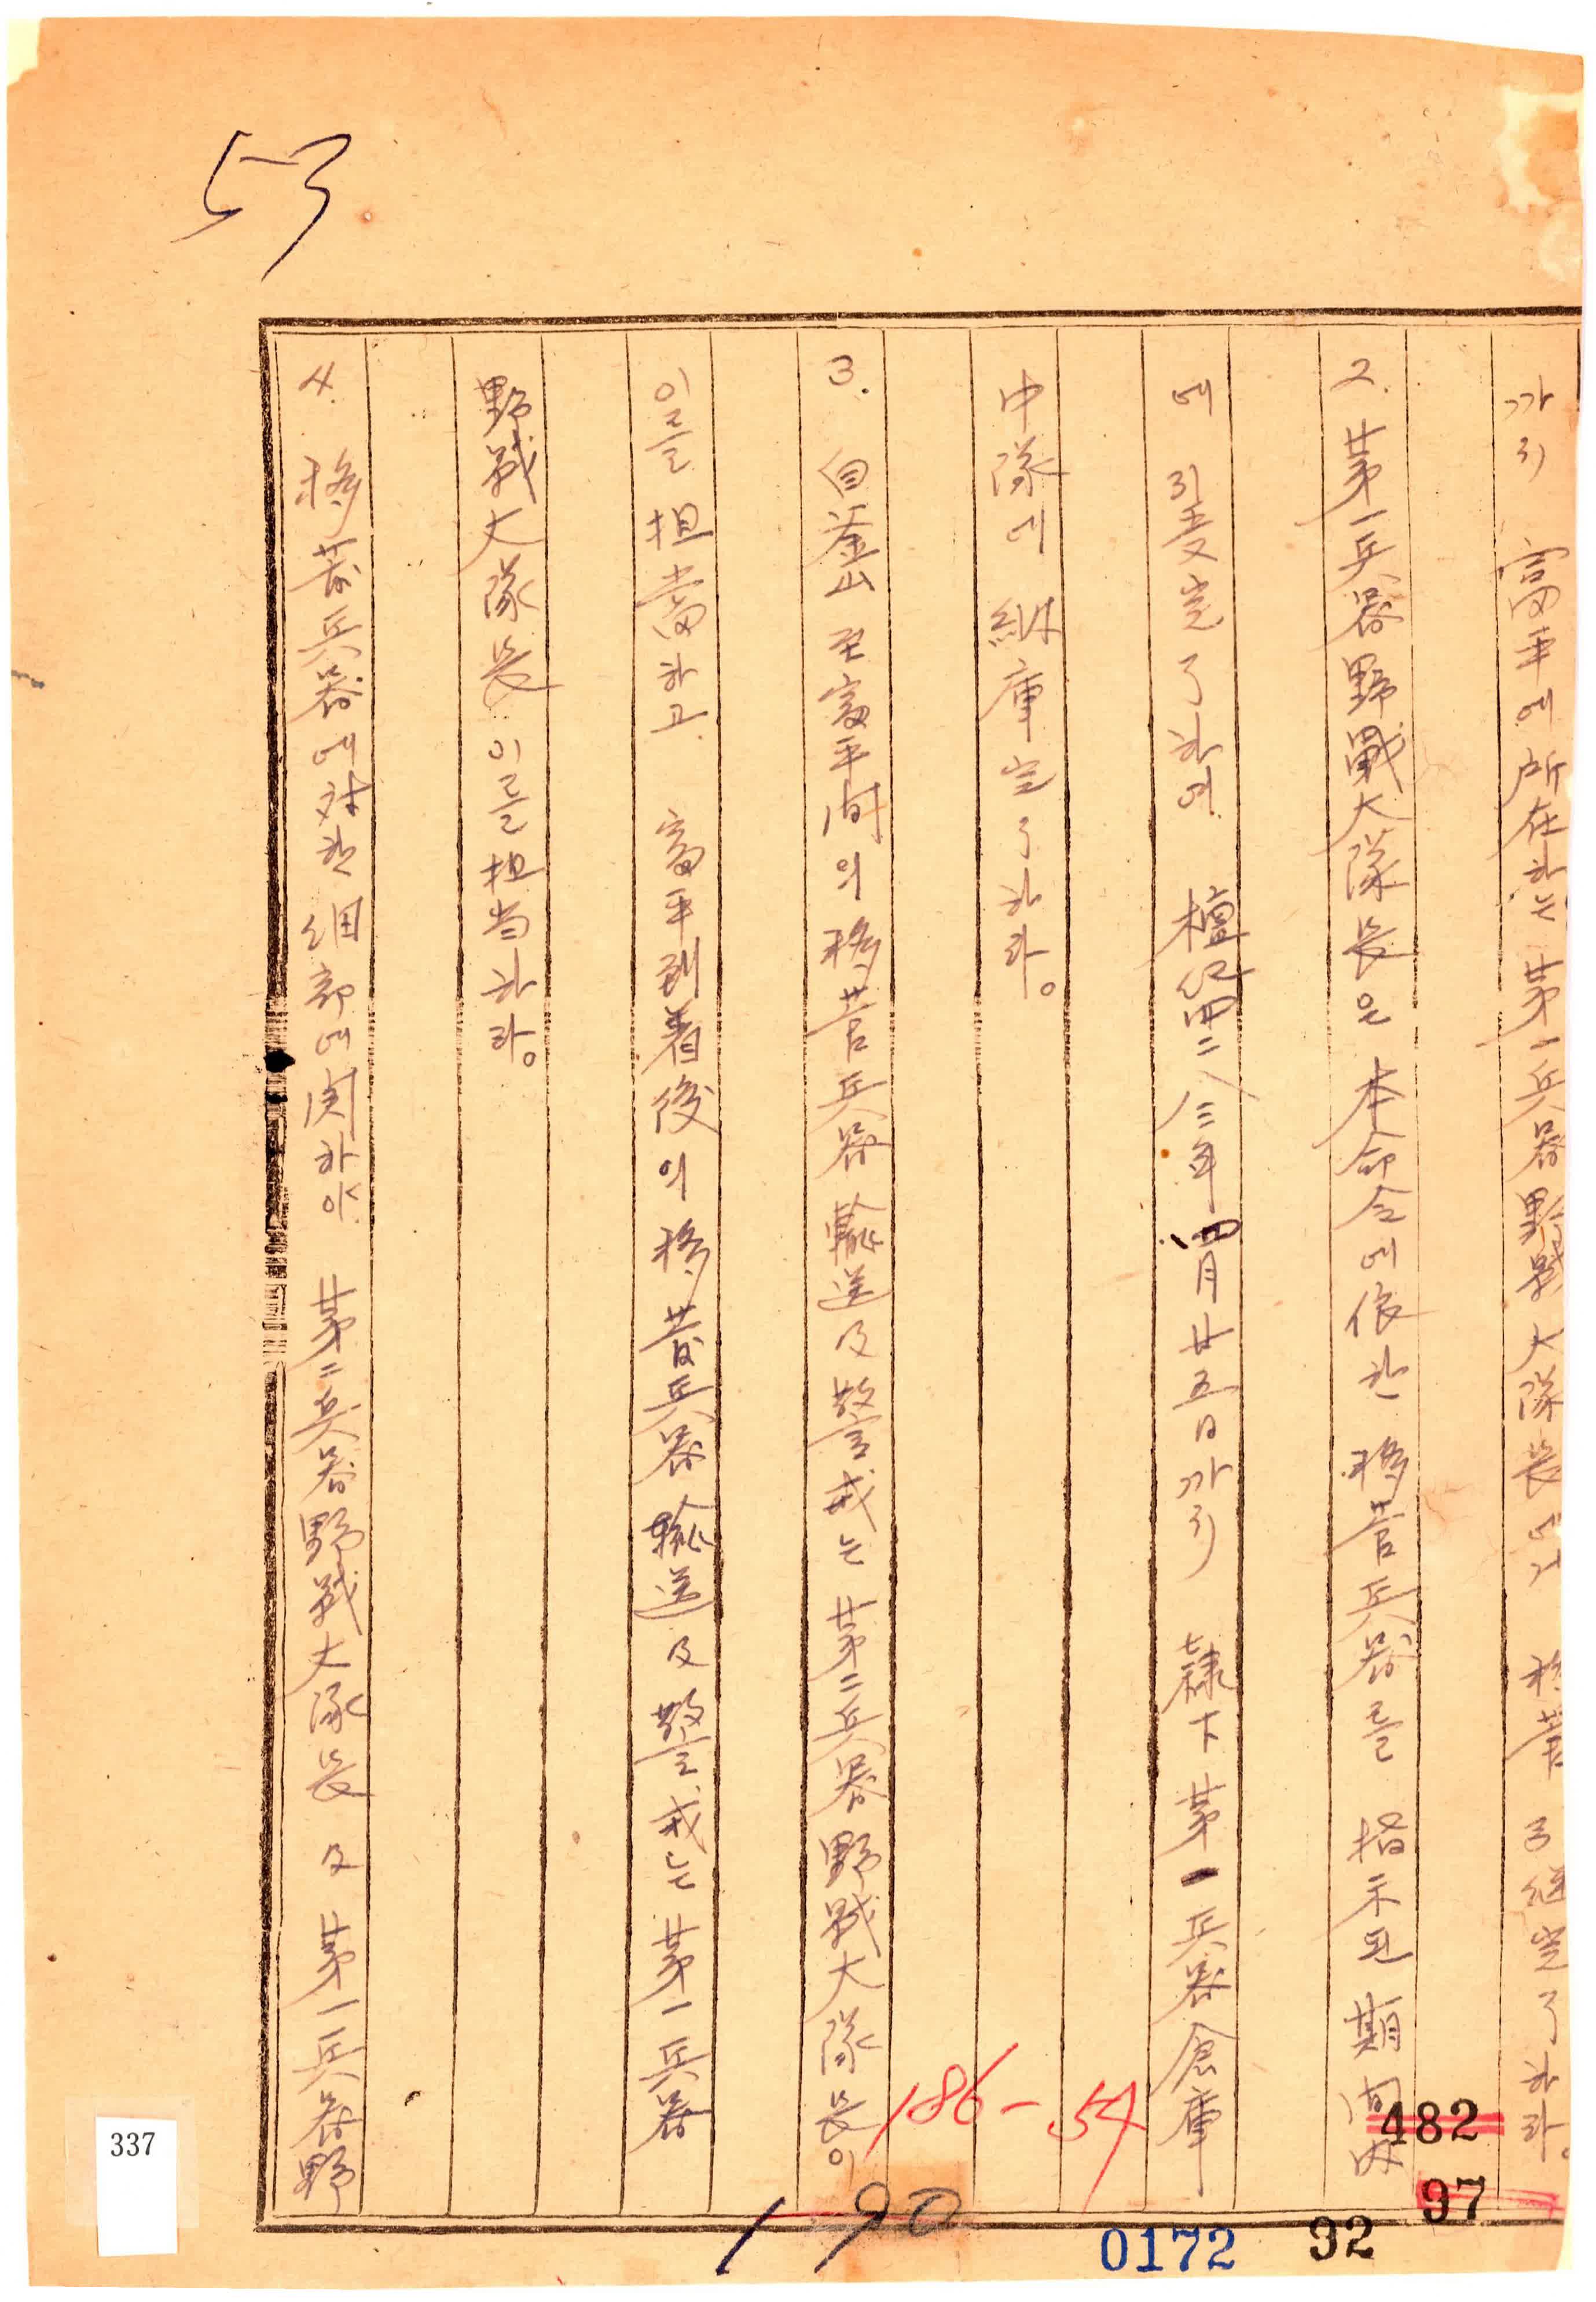 53
까지 富平에 所在하는 第一兵器野戰大隊長에게 移管 引継完了하라。
2. 第一兵器野戰大隊長은 本命令에 依한 移管兵器를 指示된 期間內
에 引受完了하며 檀紀四二八三年四月廿五日까지 隷下 第一兵器倉庫
中隊에 納庫完了하라。
3. 自釜山 至富平間의 移管兵器 輸送 及 警戒는 第二兵器野戰大隊長이
이를 担當하고 富平到着後의 移管兵器 輸送 及 警戒는 第一兵器
野戰大隊長 이를 担当하라。
4. 移管兵器에 対한 細部에 関하야 第二兵器野戰大隊長 及 第一兵器野
186-54
190
482
97
0172
92
337